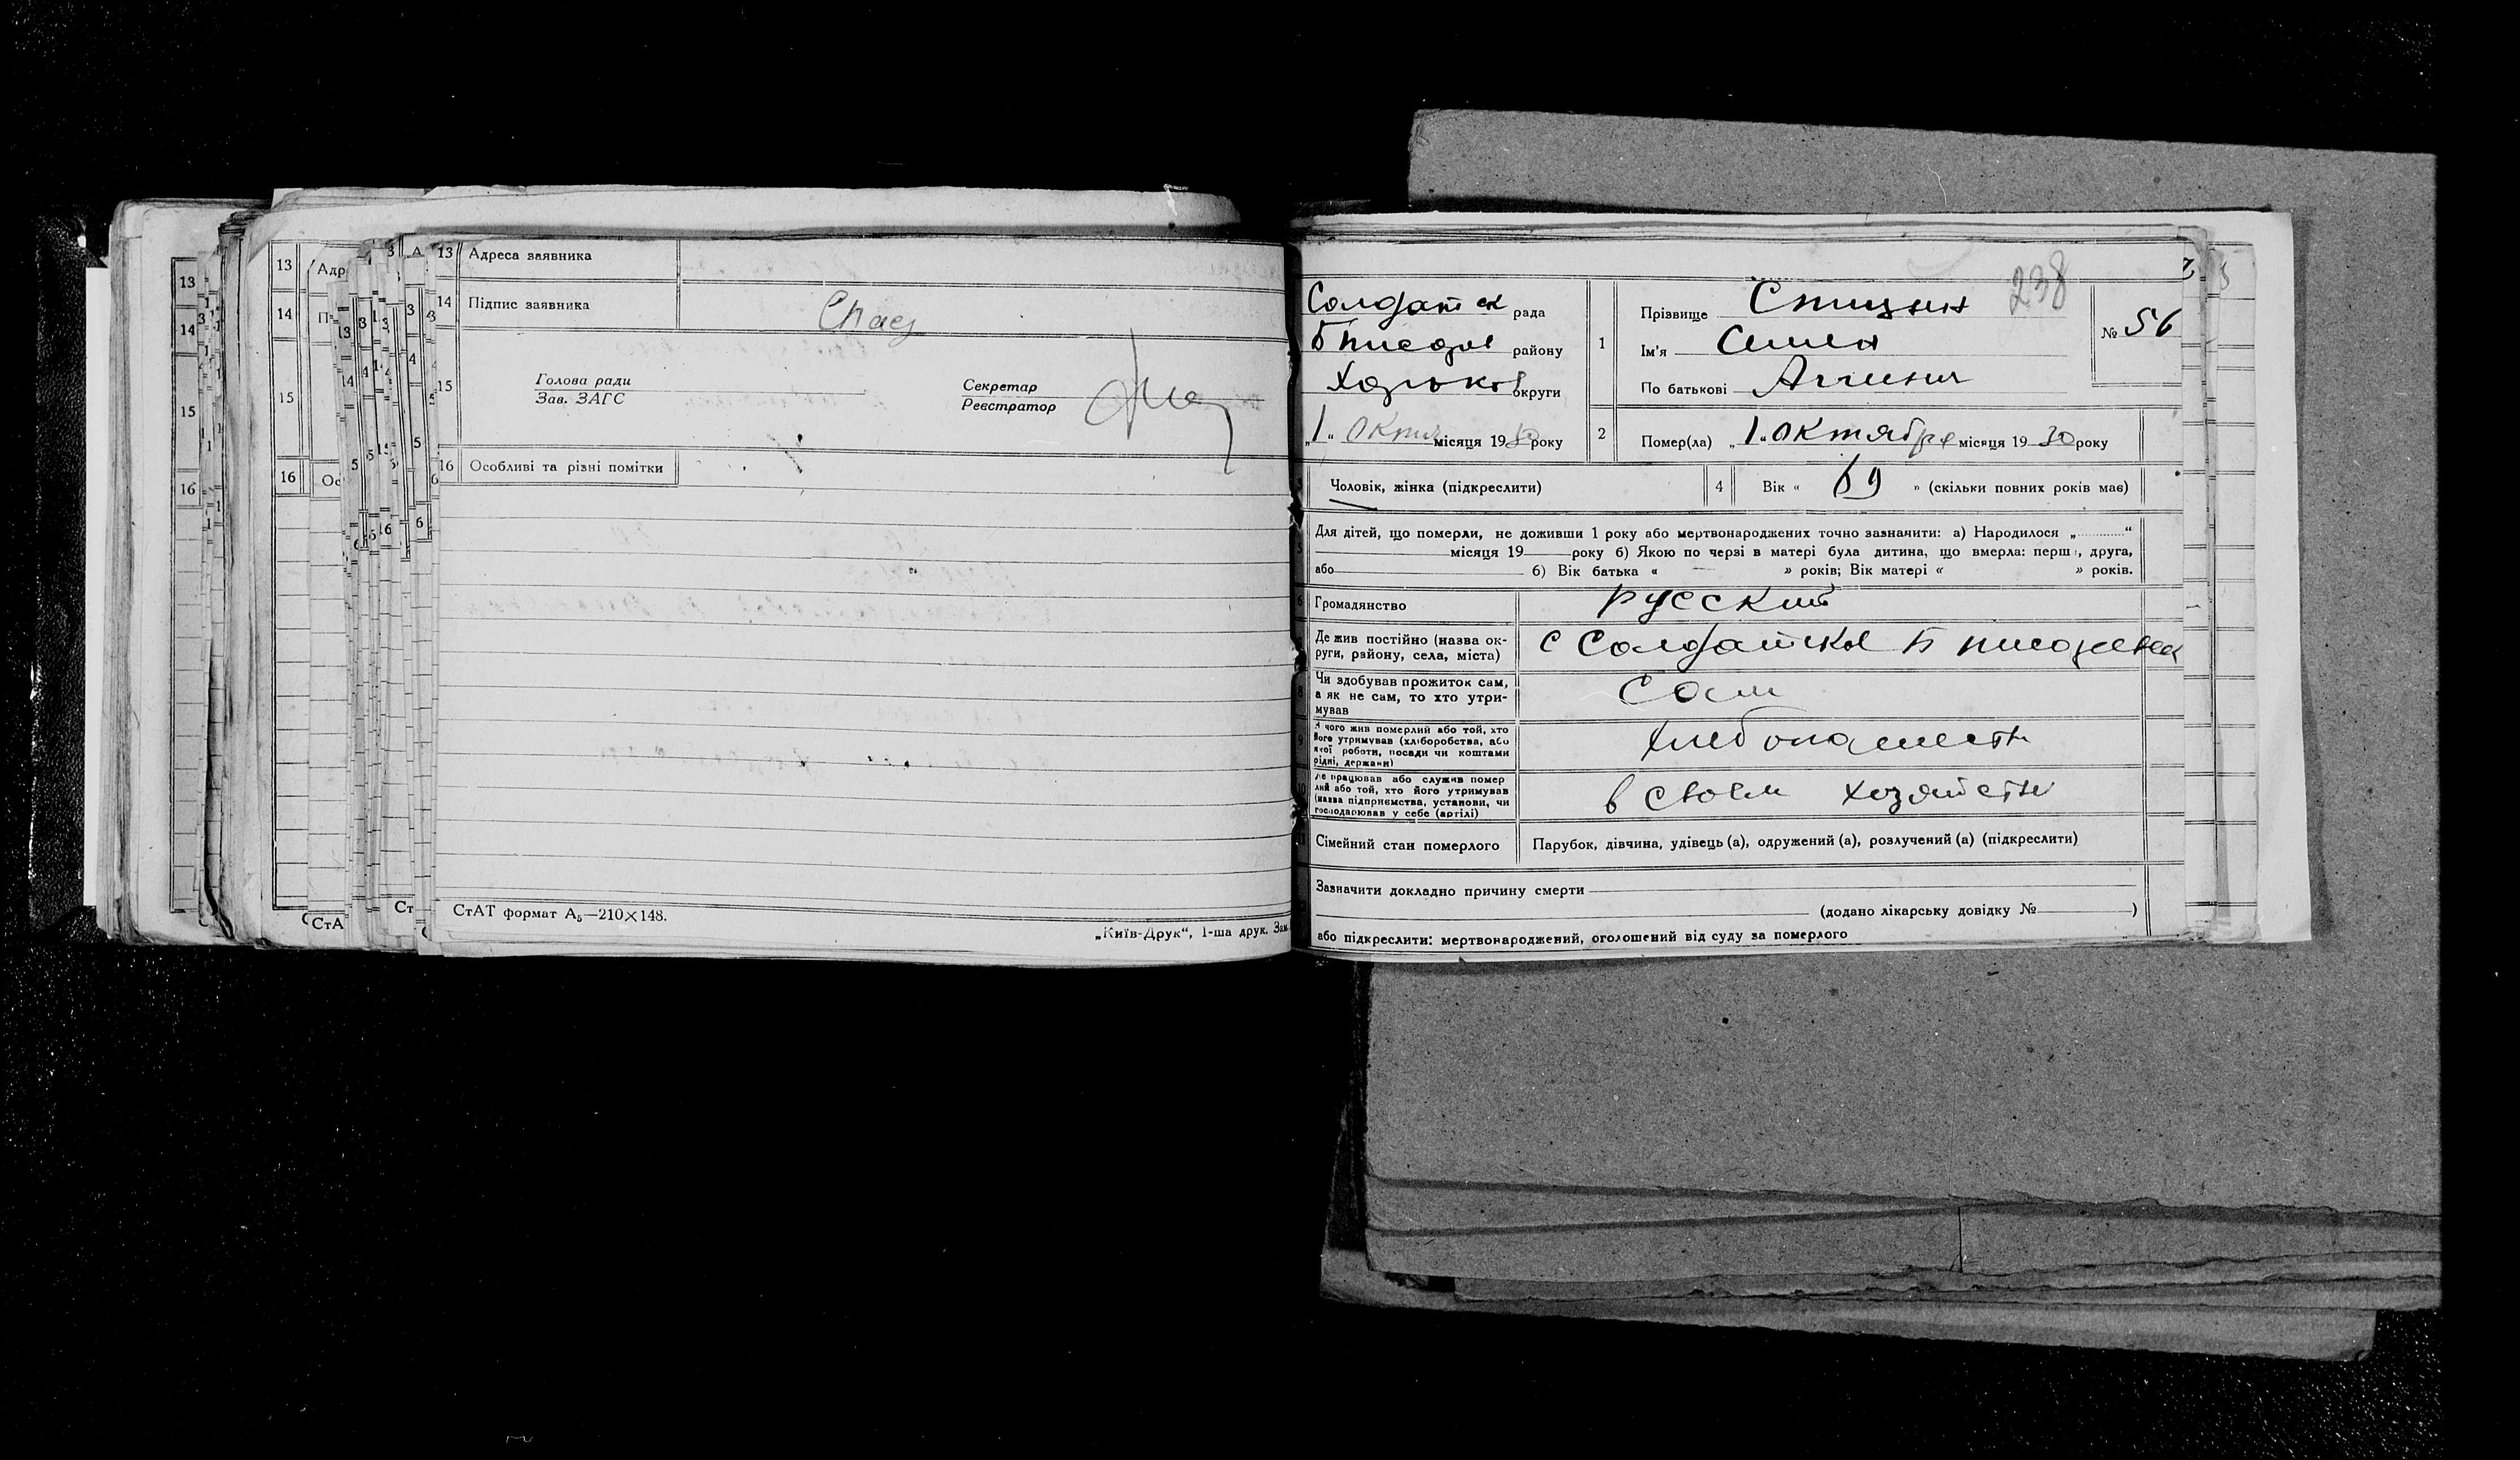 13 Адреса заявника
14 Підпис заявника
15 Голова ради
Зав. ЗАГС
Секретар
Реєстратор
16 Особливі та різні помітки
СтАТ формат А₅—210×148.
„Київ-Друк“, 1-ша друк. Зам.
238
Солдатск рада
району
округи
„1“ Октяб місяця 1930 року
1 Прізвище Спицын
Ім'я Семен
По батькові
№ 56
2 Помер(ла) „1“ октября місяця 19 30 року
Чоловік, жінка (підкреслити)
4 Вік « 69 » (скільки повних років має)
Для дітей, що померли, не доживши 1 року або мертвонароджених точно зазначити: а) Народилося „ “
місяця 19 року б) Якою по черзі в матері була дитина, що вмерла: перша, друга,
або б) Вік батька « » років; Вік матері « » років.
6 Громадянство русский
Де жив постійно (назва ок-
руги, району, села, міста) с Солдатское Б
8 Чи здобував прожиток сам,
а як не сам, то хто утри-
мував сам
9 З чого жив померлий або той, хто
його утримував (хліборобства, або
якої роботи, посади чи коштами
рідні, держави)
10 Де працював або служив помер
лий або той, хто його утримував
(назва підприємства, установи, чи
господарював у себе (артілі) в своем хозяйстве
11 Сімейний стан померлого Парубок, дівчина, удівець (а), одружений (а), розлучений (а) (підкреслити)
Зазначити докладно причину смерти
(додано лікарську довідку № )
або підкреслити: мертвонароджений, оголошений від суду за померлого